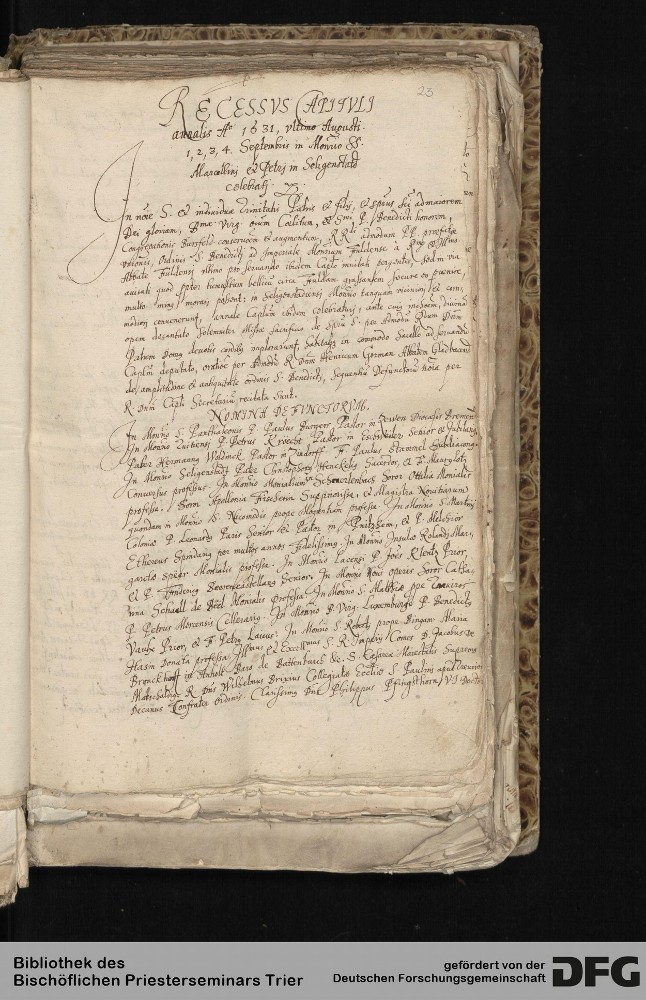 23
RECESSVS CAPITVLI
annalis Aº 1631, vltimo Augusti.
1, 2, 3, 4. Septembris in Monrio SS.
Marcellini et Petri in Seligenstadt
celebrati.
In noie S. et individuæ Trinitatis Patris et filij, et spirus sci ad maiorem
Dei gloriam, Bmæ Virg. oium Cœlitum, et Smi P. Benedicti honorem,
Congregationis Bursfeld. conservaoem et augmentum, RRdi admodum PP. præfatæ
vnionis, Ordinis S. Benedicti ad Imperiale Monrium Fuldense à Rmo et Illmo
Abbate Fuldensi vltimo pro servando ibidem Caplo invitati pergentes, sed in via
avisati quod propter tumultum bellicu circa Fuldam grassantem secure eo pvenire,
multo minus morari possent; in Seligenstadiensi Monrio tanquam viciniori, et com,
modiori convenerunt, annale Caplum ibidem celebraturi, ante cuius initium, divina
opem decantato solemniter Missæ sacrificio de Spu S. per Admodu Rdum Dnm
Patrem devotis cordib implorarunt. habitaq in commodo Sacello ad servandu
Caplm deputato, oratioe per Admodu R. Dnm Henricum Abbatem Gladbacens.
de amplitudine et antiquitate ordinis S. Benedicti, sequentiu Defunctoru noia per
R. Dnm Capli Secretariu recitata sunt.
NOMINA DEFVNCTORVM.
In Monrio S. Panthaleonis P. Paulus Pastor in Diœcesis Bremen.
In Monrio Tuitiensi P. Petrus Pastor in Senior et Jubilarius
Pater Hermannus Pastor in F. Paulus Stammel Subdiaconus
In Monrio Seligenstadt Pater Christophorus Sacerdos, et F.
Conversus professus. In Monrio Monialium Soror Ottilia Monialis
professa, Soror Apollonia Suppriorissa, et Magistra Novitiarum
quondam in Monrio S. Nicomedis prope Moguntiam professa. In Monrio S. Martini
Coloniæ P. Leonardus Paris Senior et Pastor in, et P. Melchior
Ethereus per multos annos fidelissimus. In Monrio Insulæ Rolandi Mar,
gareta Monialis professa. In Monrio Lacensi P. Joes Prior,
et P. Antonius Senior. In Monrio Novi operis Soror Catha,
rina Schaall de Monialis professa. In Monrio S. Matthiæ ppe Treviros
P. Petrus Cellerarius. In Monrio B. Virg. Luxemburgi P. Benedictus
Prior, et F. Petrus Laicus. In Monrio S. Ruberti prope Bingam Maria
Hasin Donata professa. Illmus et Excellmus S. R. Imperij Comes D. Jacobus de
Bronckhorst in Anholt Baro de Battenburch &c. S. Cæsareæ Maiestatis Supremus
Matschalcus R. Dns Wilhelmus Brixius Collegiatæ Ecclæ S. Paulini apud Treviros
Decanus Confrater ordinis. Clarissimus Dns Philippus Pfingsthorn V.I. Doctor
Bibliothek des
Bischöflichen Priesterseminars Trier
gefördert von der
Deutschen Forschungsgemeinschaft
DFG